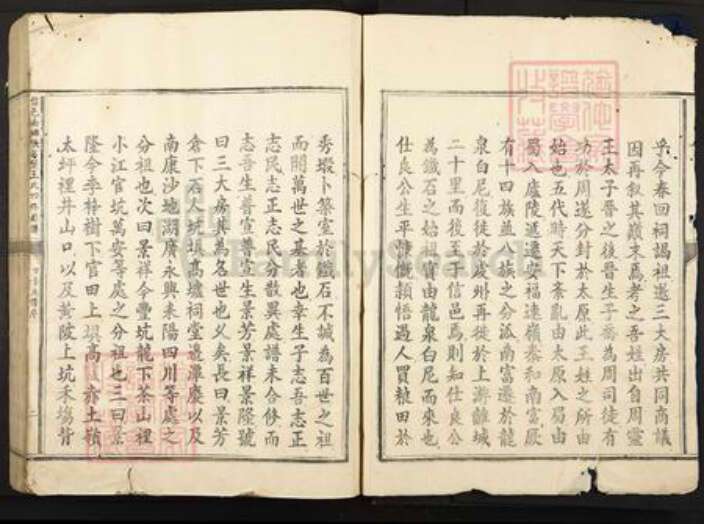 乎今春回祠謁祖邀三大房共同商議
因再叙其巔末焉考之吾姓出自周靈
王太子晉之後晉生子喬為周司徒有
功於周遂分封於太原此王姓之所由
始也五代時天下紊亂由太原入局由
蜀入廬陵遞遷安福速嶺泰和南富厥
有十四族並八族之分派南富遷於龍
泉白尼復徙於處州再徙於上游離城
二十里而後至于信邑焉則知仕良公
為鐵石之始祖實由龍泉白尼而來也
仕良公生平慷慨穎悟過人買糧田於
秀塅卜築室於鐵石不誠為百世之祖
而開萬世之基者也幸生子志吾志正
志民志正志民分散異處譜未合修而
志吾生普宣普宣生景芳景祥景隆號
曰三大房其為名世也久矣長曰景芳
倉下石人坑垻高墟祠堂邊渾麈以及
南康沙地湖廣永興耒陽四川等處之
分祖也次曰景祥今豐坑龍下茶山裡
小江官坑萬安等處之分祖也三曰景
隆今李梓樹下官田上垻高 赤土嶺
太坪裡井山口以及黃陂上坑禾塲背